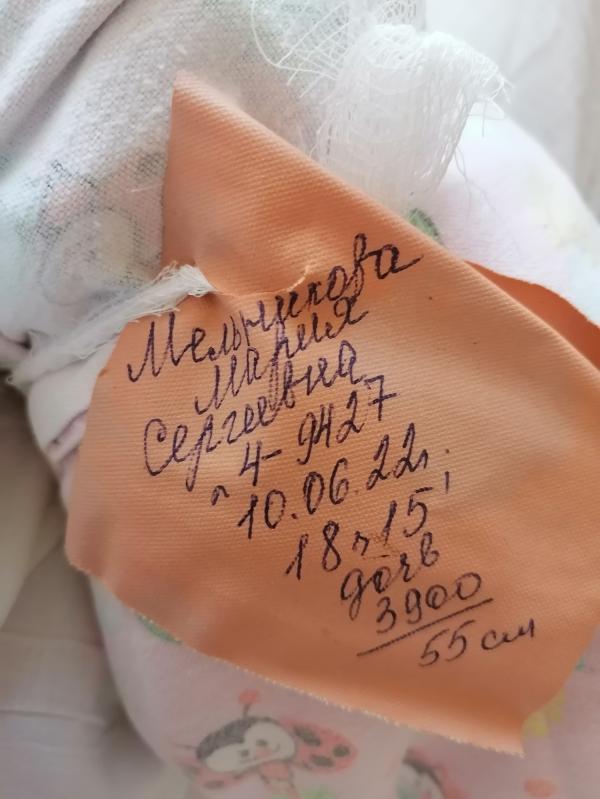 Мельникова
Мария
Сергеевна
4-9427
10.06.22г.
18ч15'
дочь
3900
55 см